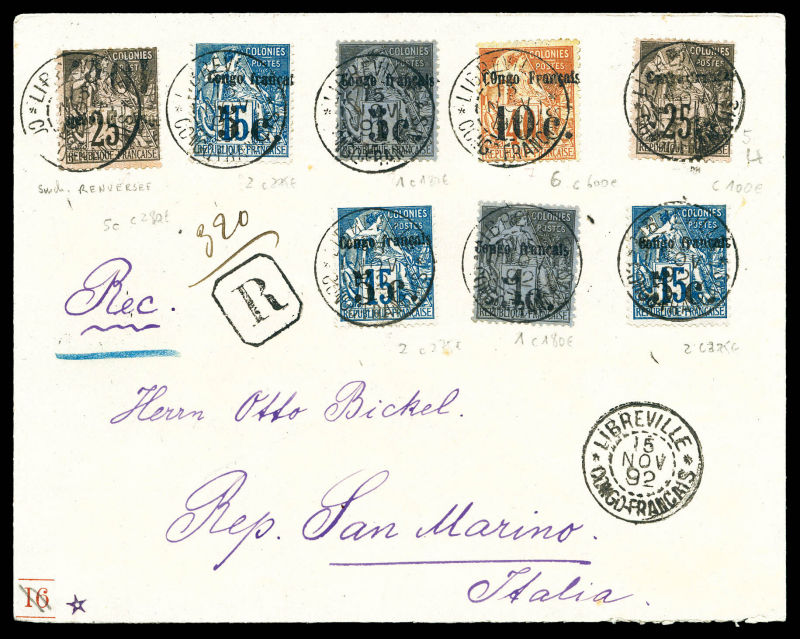 COLONIES
POSTES
25
RÉPUBLIQUE FRANÇAISE
COLONIES
POSTES
Congo français
15
5 c.
RÉPUBLIQUE FRANÇAISE
COLONIES
POSTES
Congo français
5 c.
RÉPUBLIQUE FRANÇAISE
COLONIES
POSTES
Congo Français
10 c.
RÉPUBLIQUE FRANÇAISE
COLONIES
POSTES
25
RÉPUBLIQUE FRANÇAISE
Surch. RENVERSEE
2 c 325€
1 c 180€
6 c 600€
c 100€
5
320
COLONIES
POSTES
Congo français
15
5 c.
RÉPUBLIQUE FRANÇAISE
COLONIES
POSTES
Congo français
RÉPUBLIQUE FRANÇAISE
COLONIES
POSTES
Congo français
15
5 c.
RÉPUBLIQUE FRANÇAISE
Rec.
R
1 c 180€
2 c 325€
Herrn Otto Bickel.
LIBREVILLE
15
NOV
92
CONGO-FRANÇAIS
Rep. San Marino.
Italia.
16